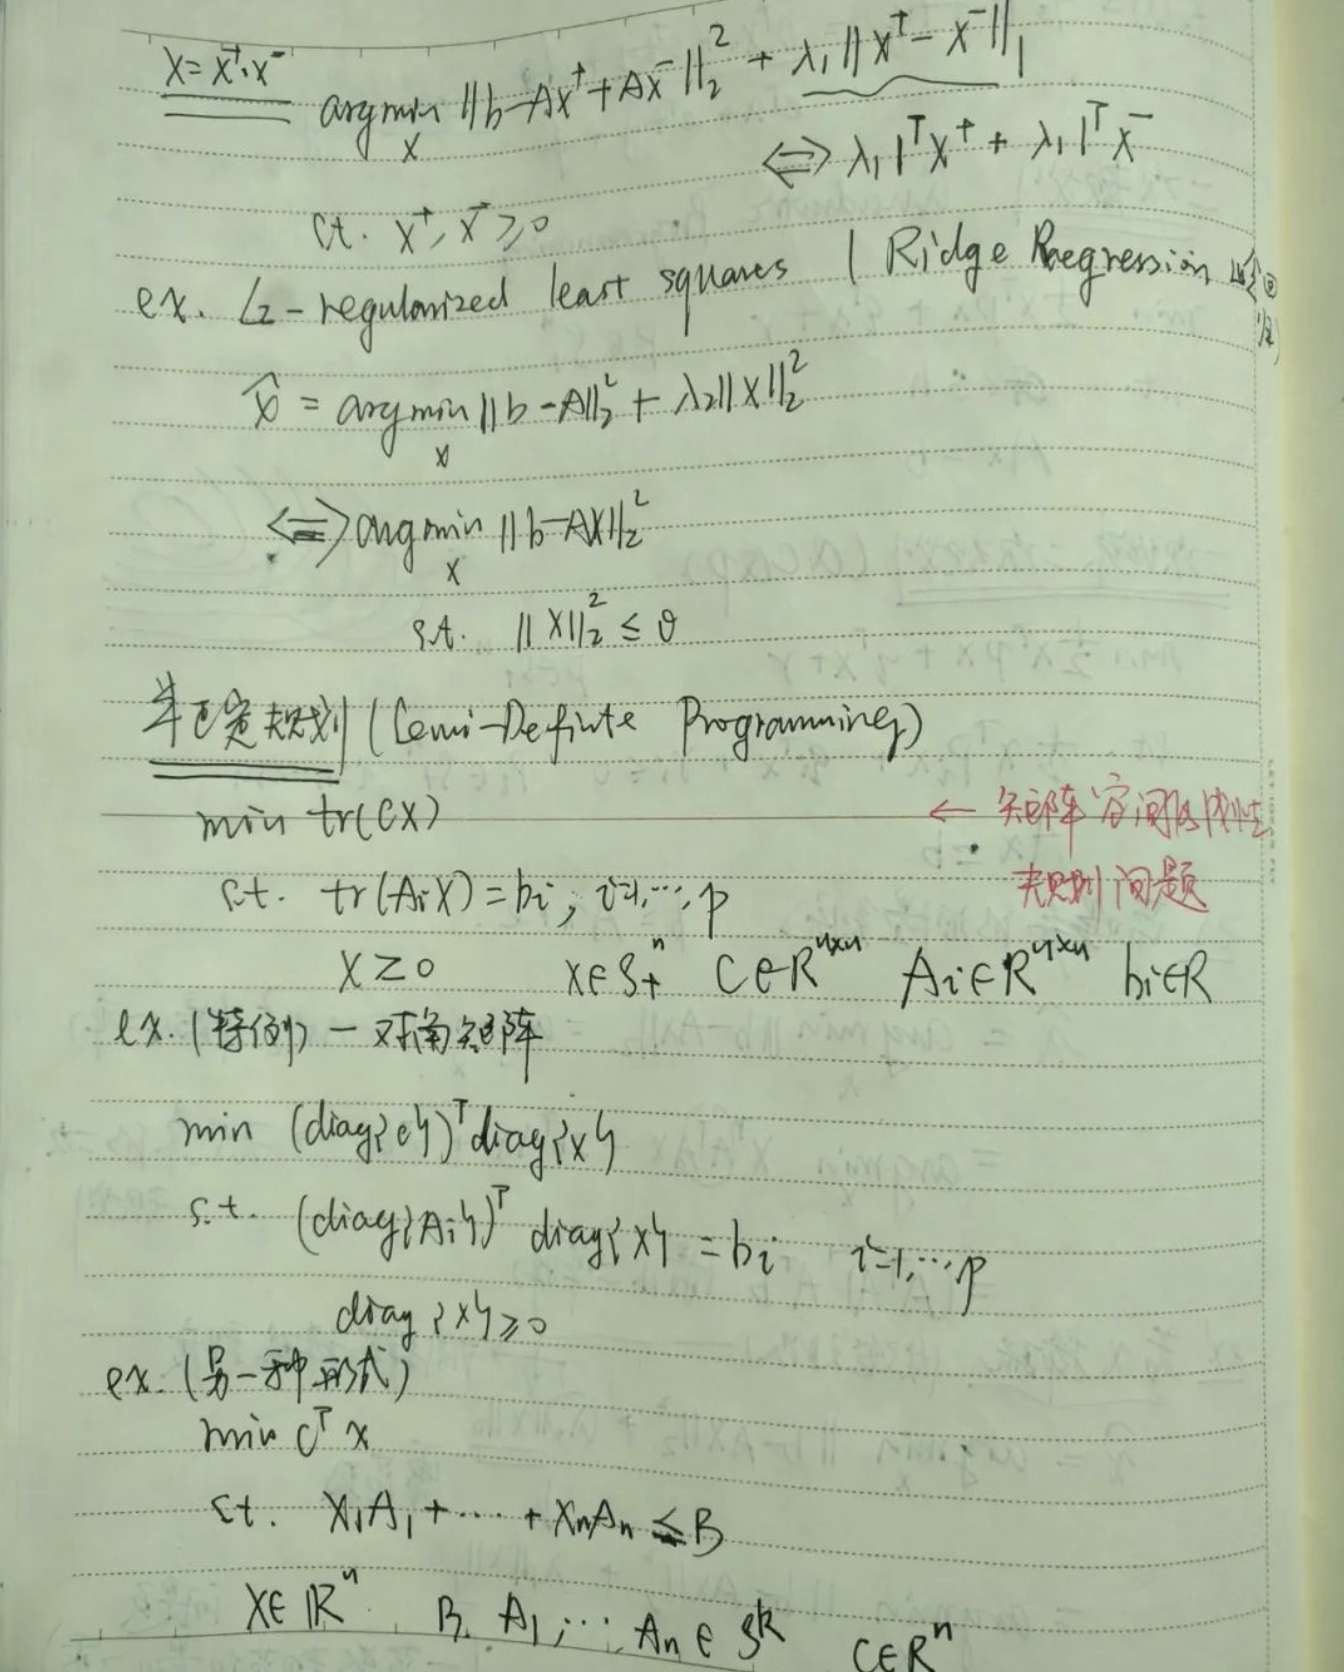 X=X⁺-X⁻ argmin_X ||b-AX⁺+AX⁻||₂² + λ₁||X⁺-X⁻||₁
⟺ λ₁1ᵀX⁺ + λ₁1ᵀX⁻
s.t. X⁺, X⁻ ≥ 0
ex. L₂-regularized least squares | Ridge Regression
x̂ = argmin_x ||b-A||₂² + λ₂||X||₂²
⟺ argmin_X ||b-AX||₂²
s.t. ||X||₂² ≤ θ
半正定规划 (Semi-Definite Programming)
min tr(CX) ← 矩阵空间的线性
s.t. tr(AᵢX)=bᵢ, i=1,⋯,p 规划问题
X≥0 X∈S₊ⁿ C∈Rⁿˣⁿ Aᵢ∈Rⁿˣⁿ bᵢ∈R
ex. (特例) — 对角矩阵
min (diag{c})ᵀdiag{x}
s.t. (diag{Aᵢ})ᵀ diag{X} = bᵢ i=1,⋯,p
diag{X} ≥ 0
ex. (另一种形式)
min Cᵀx
s.t. X₁A₁ + ⋯ + XₙAₙ ≤ B
X∈ℝⁿ B, A₁, ⋯, Aₙ ∈ Sᵏ C∈Rⁿ